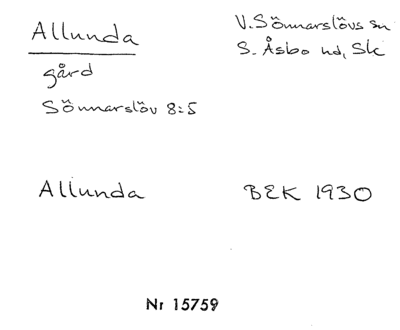 Allunda
V. Sönnarslövs sn
S. Åsbo hd, Sk
gård
Sönnarslöv 8:5
Allunda
BEK 1930
Nr 15759